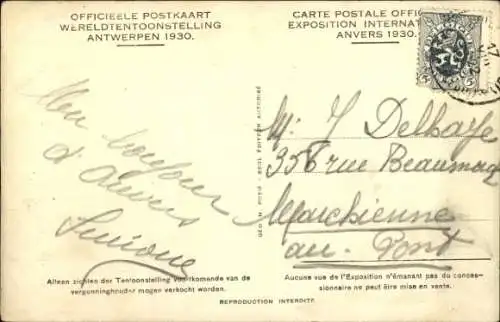 OFFICIEELE POSTKAART
WERELDTENTOONSTELLING
ANTWERPEN 1930.
CARTE POSTALE OFFIC
EXPOSITION INTERNAT
ANVERS 1930.
Mon bonjour
d'Anvers
Simone
M: J Delhaye
356 rue Beaumont
Marchienne
au-Pont
Alleen zichten der Tentoonstelling voortkomende van de
vergunninghouder mogen verkocht worden.
Aucune vue de l'Exposition n'émanant pas du conces-
sionnaire ne peut être mise en vente.
REPRODUCTION INTERDITE.